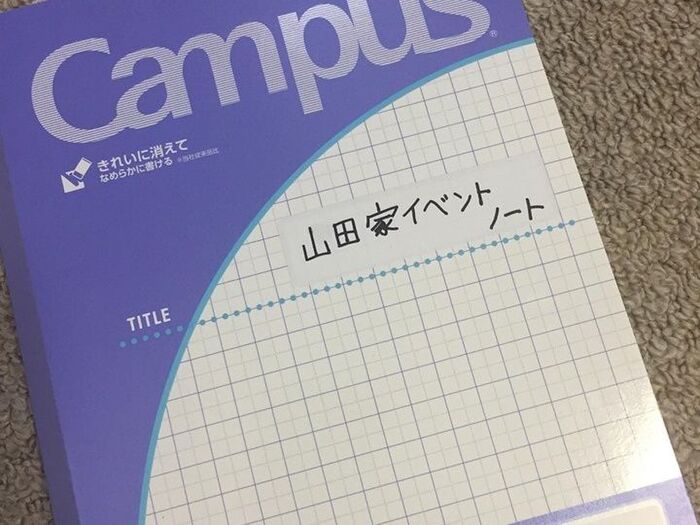 Campus®
きれいに消えて
なめらかに書ける ※当社従来品比
山田家イベント
ノート
TITLE